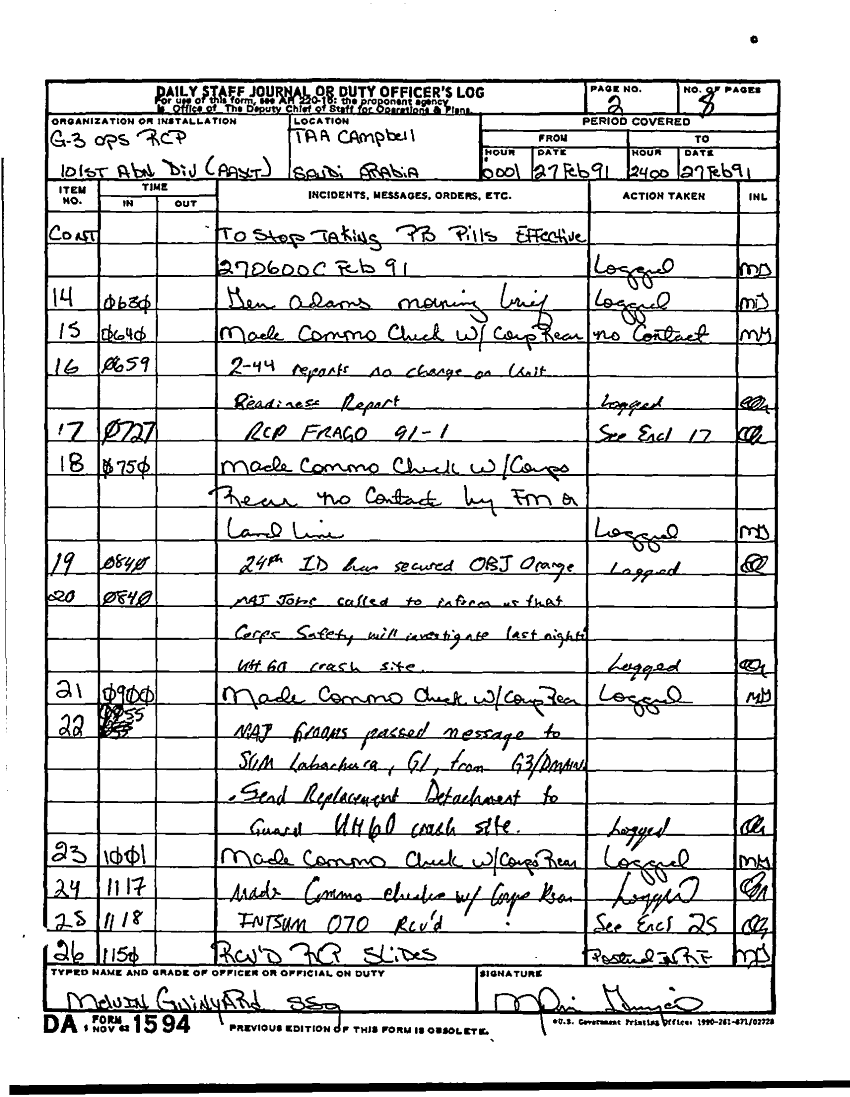 DAILY STAFF JOURNAL OR DUTY OFFICER'S LOG
For use of this form, see AR 220-15; the proponent agency
is Office of The Deputy Chief of Staff for Operations & Plans.
PAGE NO.
2
NO. OF PAGES
8
ORGANIZATION OR INSTALLATION
G-3 OPS RCP
101ST Abn Div (AASLT)
LOCATION
TAA CAmpbell
SAUDI ARABIA
PERIOD COVERED
FROM TO
HOUR DATE HOUR DATE
0001 27 Feb 91 2400 27 Feb 91
ITEM NO. TIME IN OUT INCIDENTS, MESSAGES, ORDERS, ETC. ACTION TAKEN INL
CONT To Stop TAKING PB Pills Effective
270600C Feb 91 Logged
14 0630 Gen Adams morning brief Logged
15 0640 Made Commo Check w/ Corp Rear no Contact
16 0659 2-44 reports no change on Unit
Readiness Report Logged
17 0727 RCP FRAGO 91-1 See Encl 17
18 0750 Made Commo Check w/Corps
Rear no Contact by FM or
Land Line Logged
19 0840 24th ID has secured OBJ Orange Logged
20 0840 MAJ called to inform us that
Corps Safety will investigate last night's
UH60 crash site. Logged
21 0900 Made Commo Check w/Corp Rear Logged
22 0955 MAJ Grooms passed message to
SGM G1, from G3/DMAIN
. Send Replacement Detachment to
Guard UH60 crash site. Logged
23 1001 Made Commo Check w/Corps Rear Logged
24 1117 Made Commo checks w/ Corps Rear Logged
25 1118 INTSUM 070 Rcv'd See Encl 25
26 1150 RCV'D RCP SLIDES
TYPED NAME AND GRADE OF OFFICER OR OFFICIAL ON DUTY
MELVIN GWINYARD SSG
SIGNATURE
DA FORM 1594
1 NOV 62
PREVIOUS EDITION OF THIS FORM IS OBSOLETE.
U.S. Government Printing Office: 1990-261-871/02728